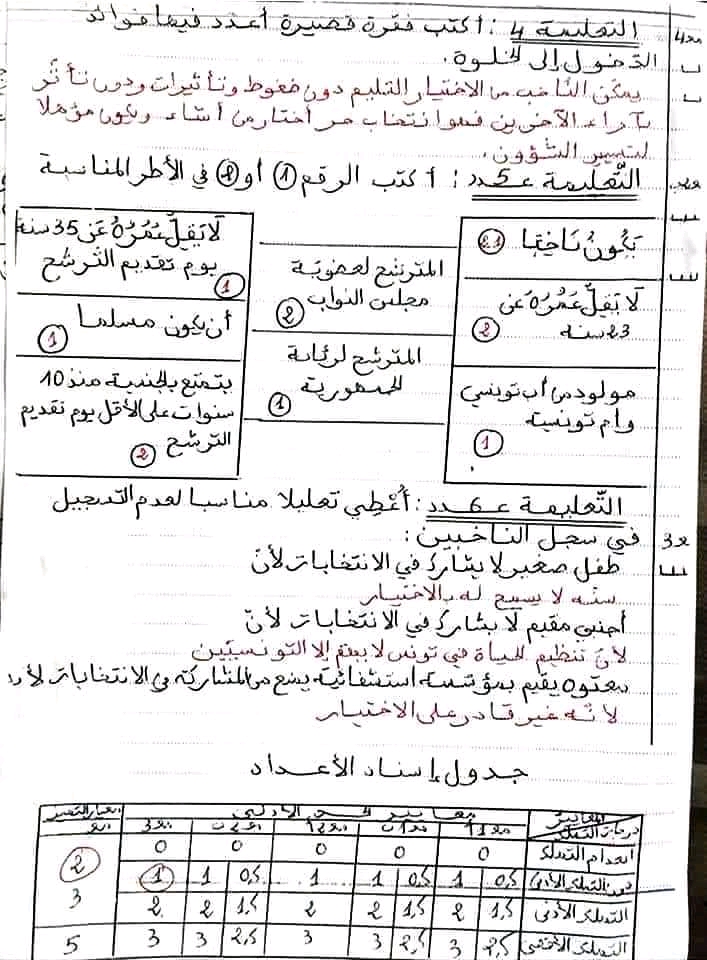 التعليمة 4 : أكتب فقرة قصيرة أعدد فيها فوائد
مع4
الدخول إلى الخلوة.
يمكن الناخب من الاختيار السليم دون ضغوط وتأثيرات ودون تأثر
بآراء الآخرين فهو انتخاب حر أختار من أشاء ويكون مؤهلا
لتسيير الشؤون.
التعليمة عـ5ـدد : أكتب الرقم 1 أو 2 في الأطر المناسبة
يكون ناخبا
2.1
لا يقل عمره عن
23 سنة
2
مولود من أب تونسي
وأم تونسية
1
المترشح لعضوية
مجلس النواب
2
المترشح لرئاسة
الجمهورية
1
لا يقل عمره عن 35 سنة
يوم تقديم الترشح
1
أن يكون مسلما
1
يتمتع بالجنسية منذ 10
سنوات على الأقل يوم تقديم
الترشح
2
التعليمة عـ6ـدد : أعطي تعليلا مناسبا لعدم التسجيل
في سجل الناخبين :
مع3
طفل صغير لا يشارك في الانتخابات لأن
سنه لا يسمح له بالاختيار
أجنبي مقيم لا يشارك في الانتخابات لأن
لأن تنظيم الحياة في تونس لا يهم إلا التونسيين
معتوه يقيم بمؤسسة استشفائية يمنع من المشاركة في الانتخابات لأنه
لأنه غير قادر على الاختيار
جدول إسناد الأعداد
المعايير
درجات التملك
معايير الحد الأدنى
معيار التميز
مع1 مع1 مع2 مع2 مع3
انعدام التملك 0 0 0 0 0
دون التملك الأدنى 0,5 1 0,5 1 1 0,5 1 1
2
التملك الأدنى 1,5 2 1,5 2 2 1,5 2 2
3
التملك الأقصى 2,5 3 2,5 3 3 2,5 3 3
5